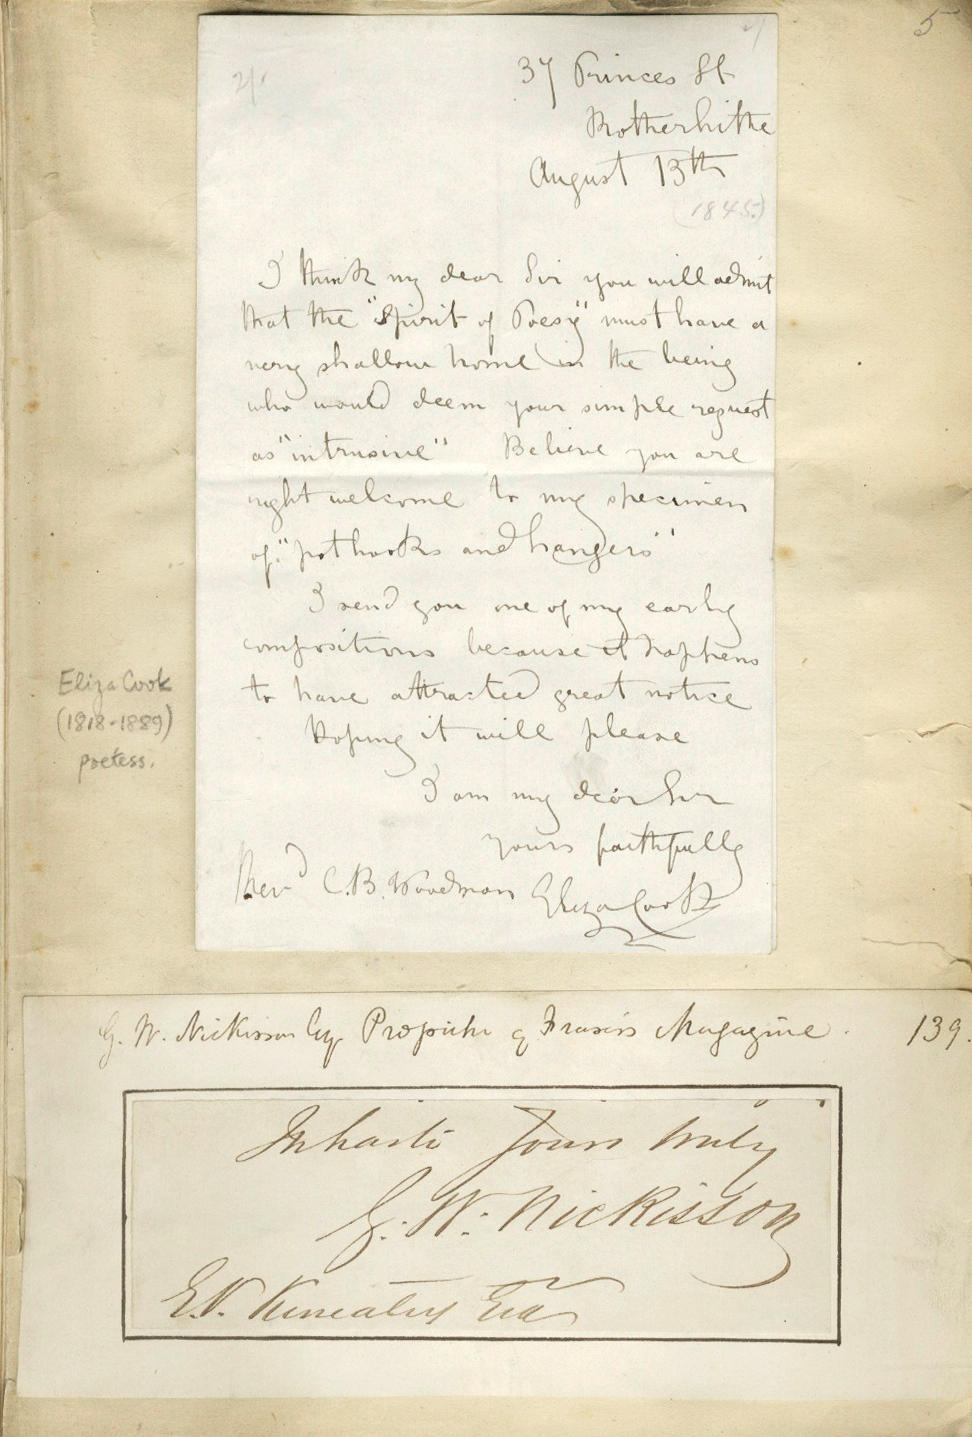 5
37 Princes St
Rotherhithe
August 13th
(1845.)
I think my dear Sir you will admit
that the "Spirit of Poesy" must have a
very shallow home in the being
who would deem your simple request
as "intrusive" Believe you are
right welcome to my specimen
of "pothooks and hangers"
I send you one of my early
compositions because it happens
to have attracted great notice
Hoping it will please
I am my dear Sir
yours faithfully
Revd C.B. Woodman Eliza Cook
Eliza Cook
(1818-1889)
poetess.
G. W. Nickisson Esq Proprietor of Frasers Magazine. 139.
In haste Yours truly
G. W. Nickisson
Esq